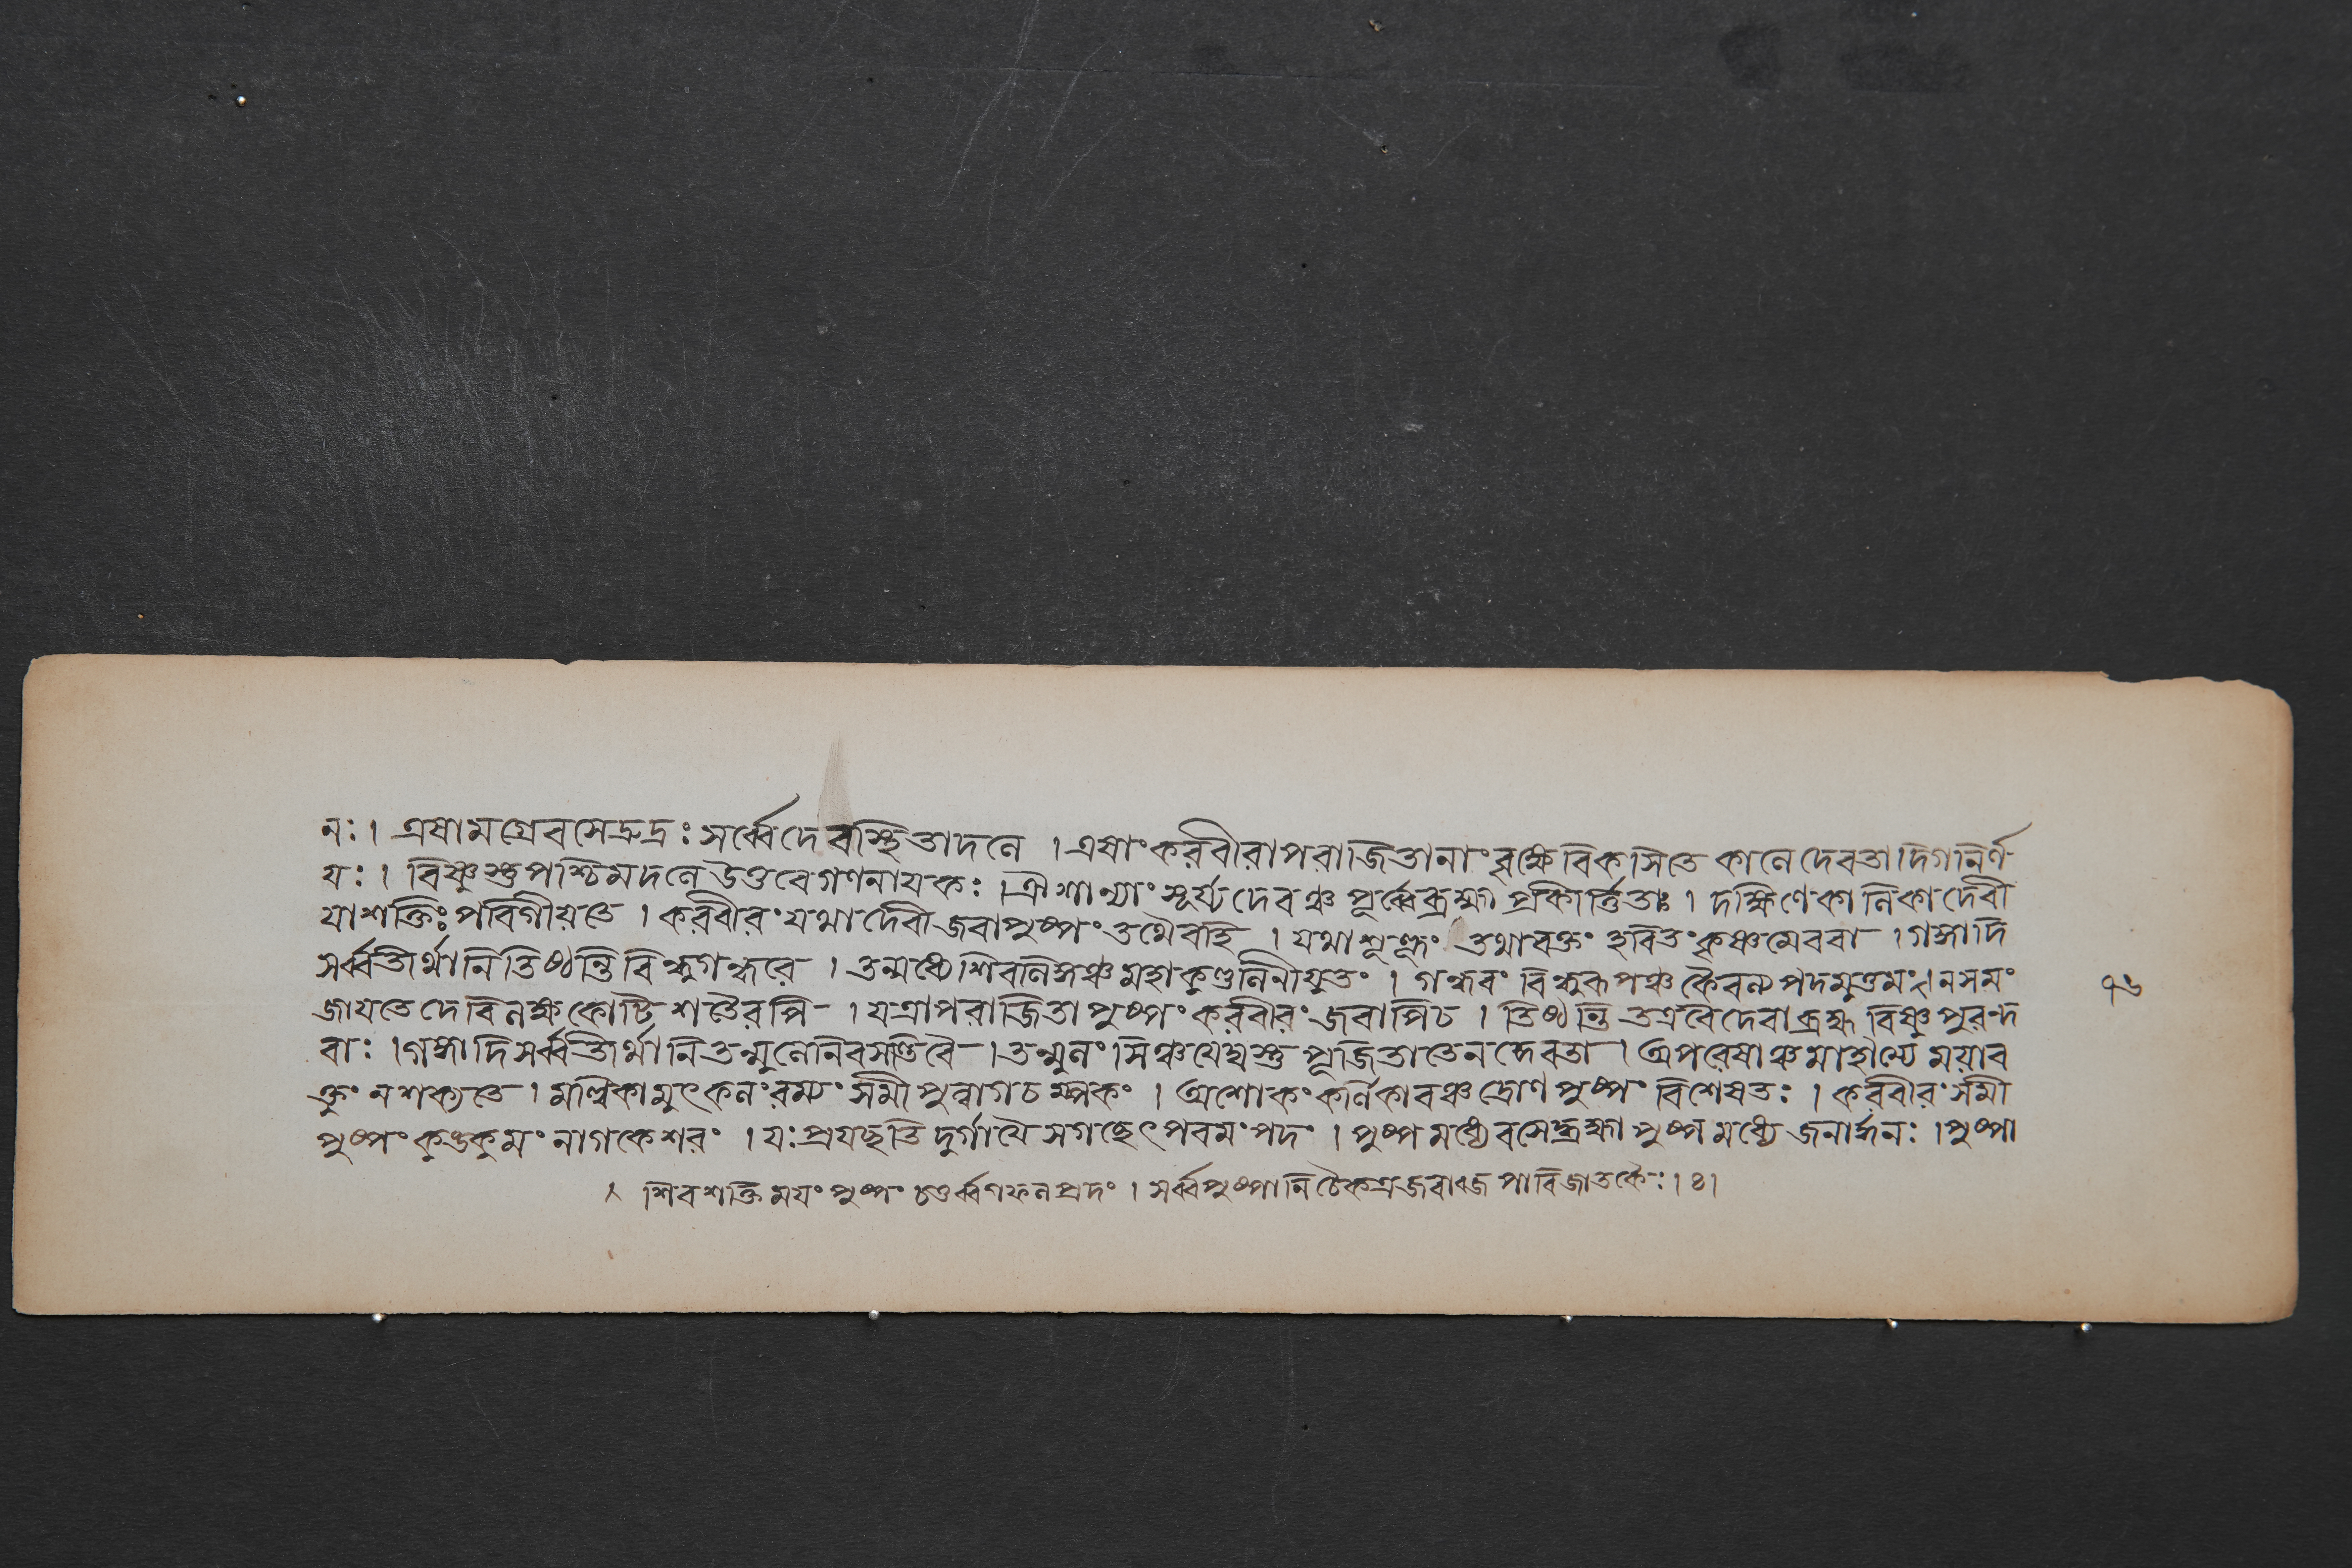 নঃ। এষামগ্রেবসেদ্রুদ্রঃ সর্ব্বেদেবাস্থিতাদলে । এষাং করবীরাপরাজিতানাং বৃক্ষে বিকসিতে কালে দেবতাদিগনির্ণ
যঃ। বিষ্ণুস্তু পশ্চিমদলে উত্তরে গণনাযকঃ । ঐশান্যাং সূর্য্যদেবঞ্চ পূর্ব্বেব্রহ্মা প্রকীর্ত্তিতাঃ । দক্ষিণেকালিকাদেবী
যাশক্তিঃ পরিগীয়তে । করবীরং যথাদেবী জবাপুষ্পং তথৈবহি । যথাশুক্লং তথারক্তং হরিতং কৃষ্ণমেববা । গঙ্গাদি
সর্ব্বতীর্থানি তিষ্ঠন্তি বিন্দুগহ্বরে । তন্মধ্যে শিবলিঙ্গঞ্চ মহাকুণ্ডলিনীযুতং । গহ্বরং বিন্দুরূপঞ্চ কৈবল্যপদমুত্তমং । নসমং
জাযতে দেবি লক্ষকোটি শতৈরপি । যত্রাপরাজিতাপুষ্পং করবীরং জবাপিচ । তিষ্ঠন্তি তত্রবৈদেবাব্রহ্ম বিষ্ণু পুরন্দ
রাঃ । গঙ্গাদিসর্ব্বতীর্থানি তন্মূলে নিবসন্তিবৈ । তন্মূলং সিঞ্চযেদ্যস্তু পূজিতাতেন দেবতা । অপরেষাঞ্চমাহাত্ম্যে ময়াব
ক্তুং নশক্যতে । মল্লিকামুৎকলং রম্যং সমীপুন্নাগচম্পকং । অশোকং কর্ণিকারঞ্চ দ্রোণপুষ্পং বিশেষতঃ । করবীরং সমী
পুষ্পং কুঙকুমং নাগকেশরং । যঃ প্রযচ্ছতি দুর্গাযৈ সগচ্ছেৎ পরমং পদং । পুষ্পমধ্যে বসেদ্ব্রহ্মা পুষ্পমধ্যে জনার্দ্দনঃ । পুষ্পা
শিবশক্তিময়ং পুষ্পং চতুর্ব্বর্গফলপ্রদং । সর্ব্বপুষ্পানি চৈকত্র জবাব্জ পারিজাতকৈঃ । ৪ ।
১৬